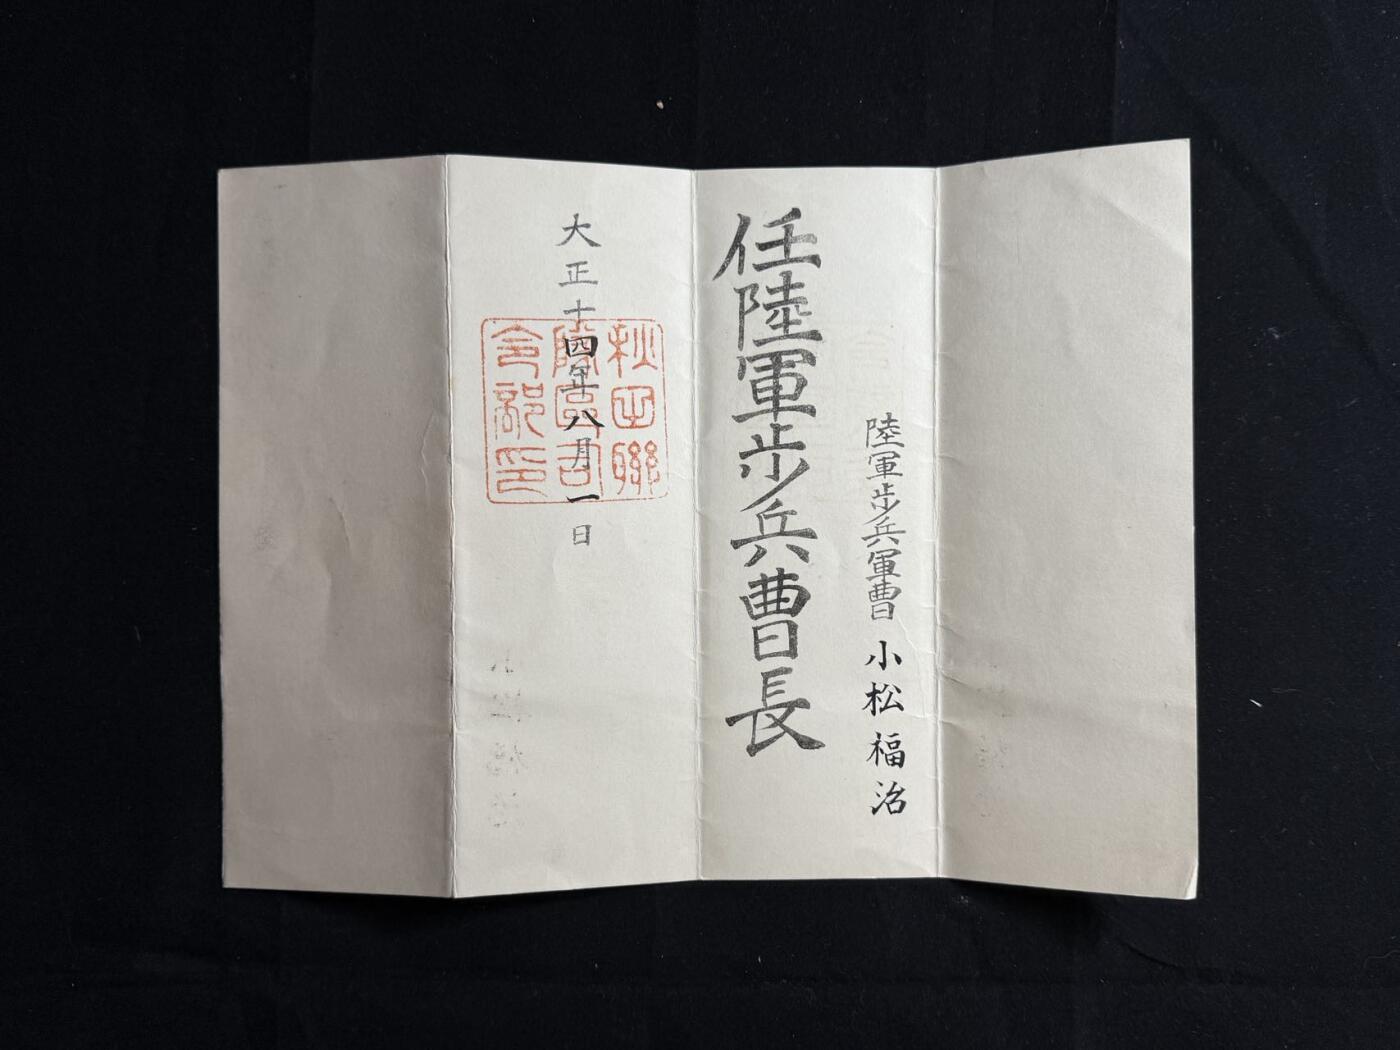 陸軍歩兵軍曹 小松福治
任陸軍歩兵曹長
大正十四年八月一日
秋田聯
隊區司
令部印